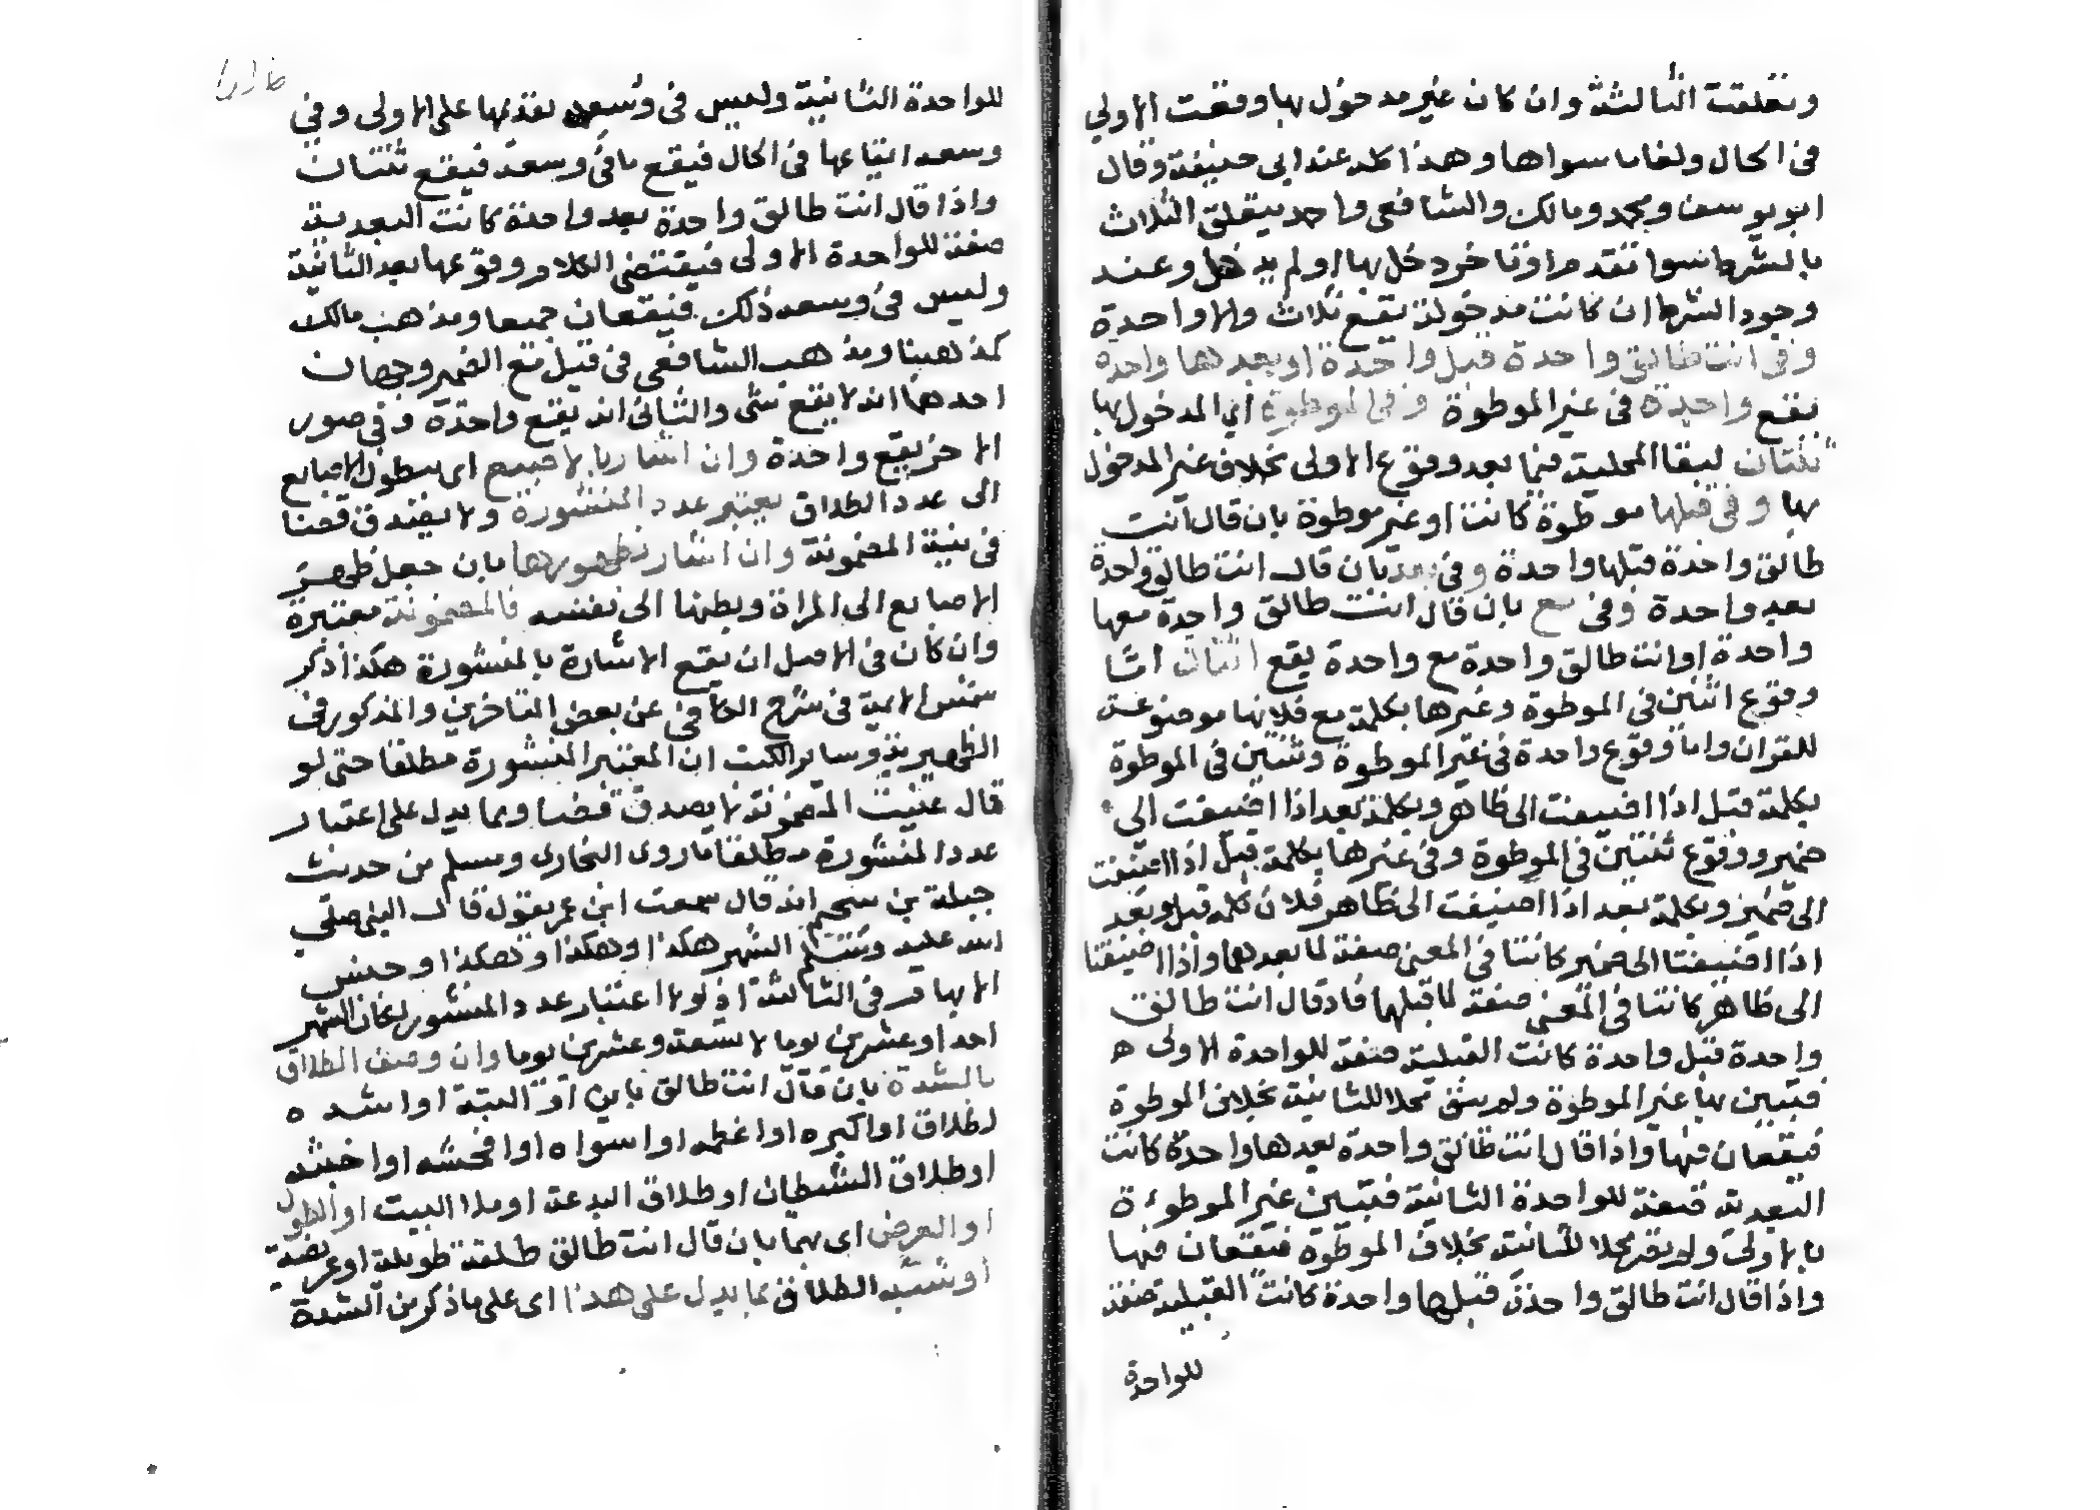 وتعلقت الثالثة وان كان غير مدخول بها وقعت الاولي
في الحال ولغا ما سواها وهذا كله عند ابي حنيفة وقال
ابو يوسف ومحمد ومالك والشافعي واحمد يتعلق الثلاث
بالشرط سوا تقدم او تاخر دخل بها او لم يدخل وعند
وجود الشرط ان كانت مدخولة تقع ثلاث والا واحدة
وفي انت طالق واحدة قبل واحدة او بعدها واحدة
تقع واحدة في غير الموطوة وفي الموطوة اي المدخول بها
ثنتان لبقا المحلية فيما بعد وقوع الاولى بخلاف غير المدخول
بها وفي قبلها موطوة كانت او غير موطوة بان قال انت
طالق واحدة قبلها واحدة وفي بعد بان قال انت طالق واحدة
بعد واحدة وفي مع بان قال انت طالق واحدة معها
واحدة او انت طالق واحدة مع واحدة يقع اثنتان اما
وقوع اثنين في الموطوة وغيرها بكلمة مع فلانها موضوعة
للقران واما وقوع واحدة في غير الموطوة وثنتين في الموطوة
بكلمة قبل اذا اضيفت الى ظاهر وبكلمة بعد اذا اضيفت الى
ضمير ووقوع ثنتين في الموطوة وفي غيرها بكلمة قبل اذا اضيفت
الى ضمير وبكلمة بعد اذا اضيفت الى ظاهر فلان كلمة قبل وبعد
اذا اضيفتا الى ضمير كانتا في المعنى صفة لما بعدهما واذا اضيفتا
الى ظاهر كانتا في المعنى صفة لما قبلها فاذ قال انت طالق
واحدة قبل واحدة كانت القبلية صفة للواحدة الاولى ه
فتبين بها غير الموطوة ولم يبق محلا للثانية بخلاف الموطوة
فيقعان فيها واذا قال انت طالق واحدة بعدها واحدة كانت
البعدية صفة للواحدة الثانية فتبين غير الموطوءة
بالاولى ولم يقع محلا للثانية بخلاف الموطوة فتقعان فيها
واذا قال انت طالق واحدة قبلها واحدة كانت القبلية صفة
للواحدة
للواحدة الثانية وليس في وسعه تقديمها على الاولى وفي
وسعه ايقاعها في الحال فيقع ما في وسعه فيقع ثنتان
واذا قال انت طالق واحدة بعد واحدة كانت البعدية
صفة للواحدة الاولى فيقتضي الكلام وقوعها بعد الثانية
وليس في وسعه ذلك فيقعان جميعا ومذهب مالك
كمذهبنا ومذهب الشافعي في قبل مع الضمير وجهان
احدهما انه لا يقع شي والثاني انه يقع واحدة وفي صور
الاخر يقع واحدة وان اشار بالاصبع اي بطول الاصابع
الى عدد الطلاق يعتبر عدد المنشورة ولا يصدق قضا
في نية المضمونة وان اشار بظهورها بان جعل ظهر
الاصابع الى المراة وبطنها الى نفسه فالمضمونة معتبرة
وان كان في الاصل ان تقع الاشارة بالمنشورة هكذا ذكر
شمس الايمة في شرح الكافي عن بعض المتاخرين والمذكور في
الظهيرية وساير الكتب ان المعتبر المنشورة مطلقا حتى لو
قال عنيت المضمونة لا يصدق قضا ومما يدل على اعتبار
عدد المنشورة مطلقا ما روى البخاري ومسلم من حديث
جبلة بن سحيم انه قال سمعت ابن عمر يقول قال النبي صلى
الله عليه وسلم الشهر هكذا وهكذا وهكذا وخنس
الابهام في الثالثة اذ لولا اعتبار عدد المنشور لكان الشهر
احدا وعشرين يوما لا تسعة وعشرين يوما وان وصف الطلاق
بالشدة بان قال انت طالق باين او البتة او اشد ه
الطلاق او اكبره او اعظمه او اسواه او افحشه او اخبثه
او طلاق الشيطان او طلاق البدعة او ملا البيت او الطول
او العرض اي بهما بان قال انت طالق طلقة طويلة او عريضة
او شبه الطلاق بما يدل على هذا اي على ما ذكر من الشدة